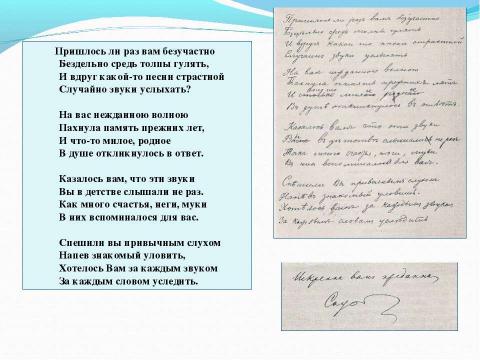 Пришлось ли раз вам безучастно
Бездельно средь толпы гулять,
И вдруг какой-то песни страстной
Случайно звуки услыхать?
На вас нежданною волною
Пахнула память прежних лет,
И что-то милое, родное
В душе откликнулось в ответ.
Казалось вам, что эти звуки
Вы в детстве слышали не раз.
Как много счастья, неги, муки
В них вспоминалося для вас.
Спешили вы привычным слухом
Напев знакомый уловить,
Хотелось Вам за каждым звуком
За каждым словом уследить.
Пришлось ли разъ вамъ безучастно
средь толпы гулять
И вдругъ какой то песни страстной
Случайно звуки услыхать
На васъ нежданною волною
Пахнула память прежнихъ летъ
И милое родное
Въ душе откликнулось въ ответъ.
Казалось вамъ что эти звуки
Въ детстве слышали не разъ
Такъ много счастья, неги, муки
Въ нихъ вспоминалось для васъ.
Спешили Вы привычнымъ слухомъ
Напевъ знакомый уловить,
Хотелось за каждымъ звукомъ
За каждымъ словомъ уследить
Искренне вамъ преданная